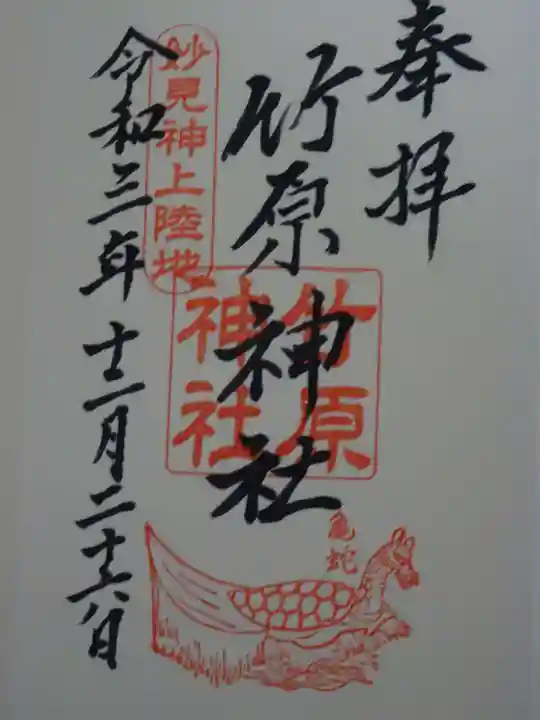 奉拝
竹原神社
竹原
神社
妙見神上陸地
令和三年十二月二十六日
亀蛇